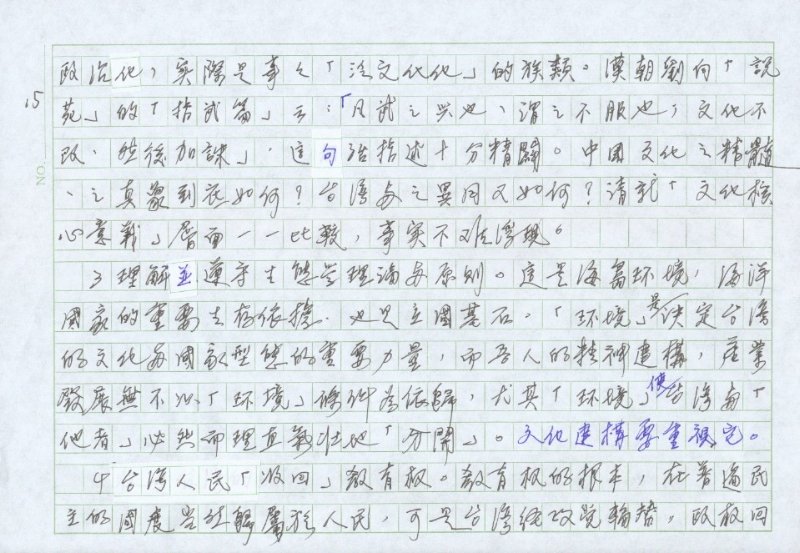 政治化，實際是事之「泛文化化」的族類。漢朝劉向「說
15
苑」的「指武篇」云：「凡武之兴也，謂之不服也，文化不
NO.
改，然後加誅」，這句話指述十分精闢。中國文化之精髓
、之真象到底如何？台湾与之異同又如何？請就「文化核
心意義」層面一一比較，事实不难浮現。
3 理解並遵守生態学理論与原則。這是海島环境，海洋
國家的重要生存依據，也是立國基石。「环境」是决定台湾
的文化与國家型態的重要力量，而吾人的精神建構，產業
發展無不以「环境」條件為依歸，尤其「环境」使台湾与「
他者」必然而理直氣壯地「分開」。文化建構要重視它。
4 台湾人民「收回」教育权。教育权的根本，在普遍民
主的國度当然歸屬於人民，可是台湾經政党輪替，政权回